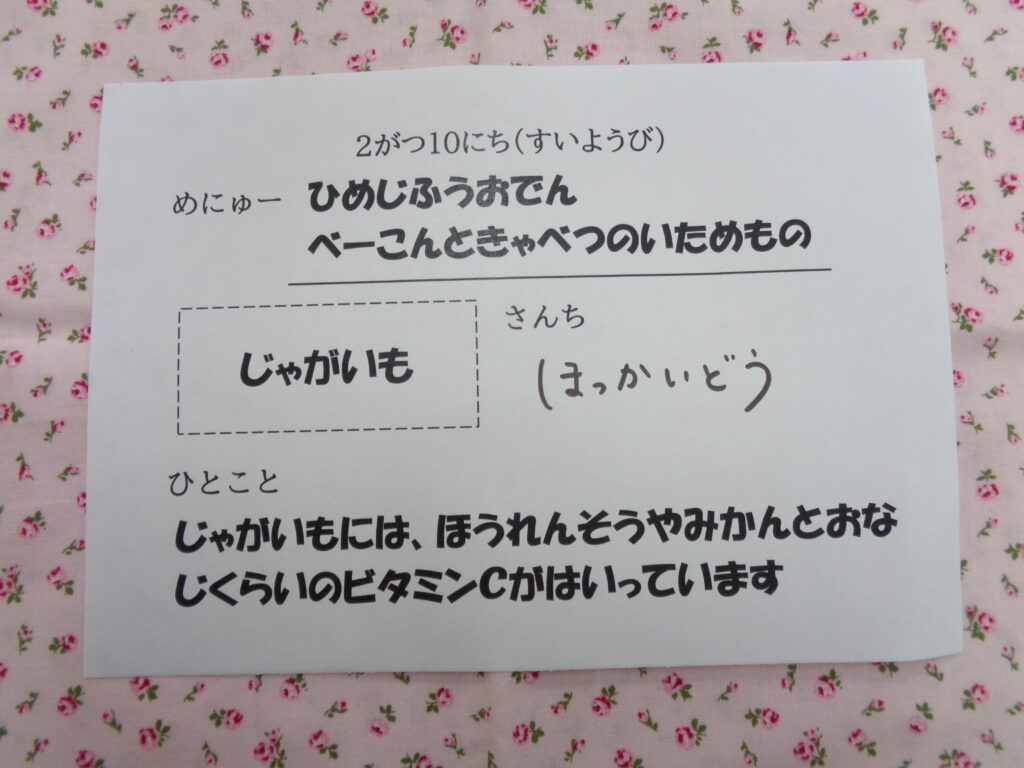 2がつ10にち(すいようび)
めにゅー ひめじふうおでん
べーこんときゃべつのいためもの
じゃがいも
さんち
(ほっかいどう)
ひとこと
じゃがいもには、ほうれんそうやみかんとおな
じくらいのビタミンCがはいっています